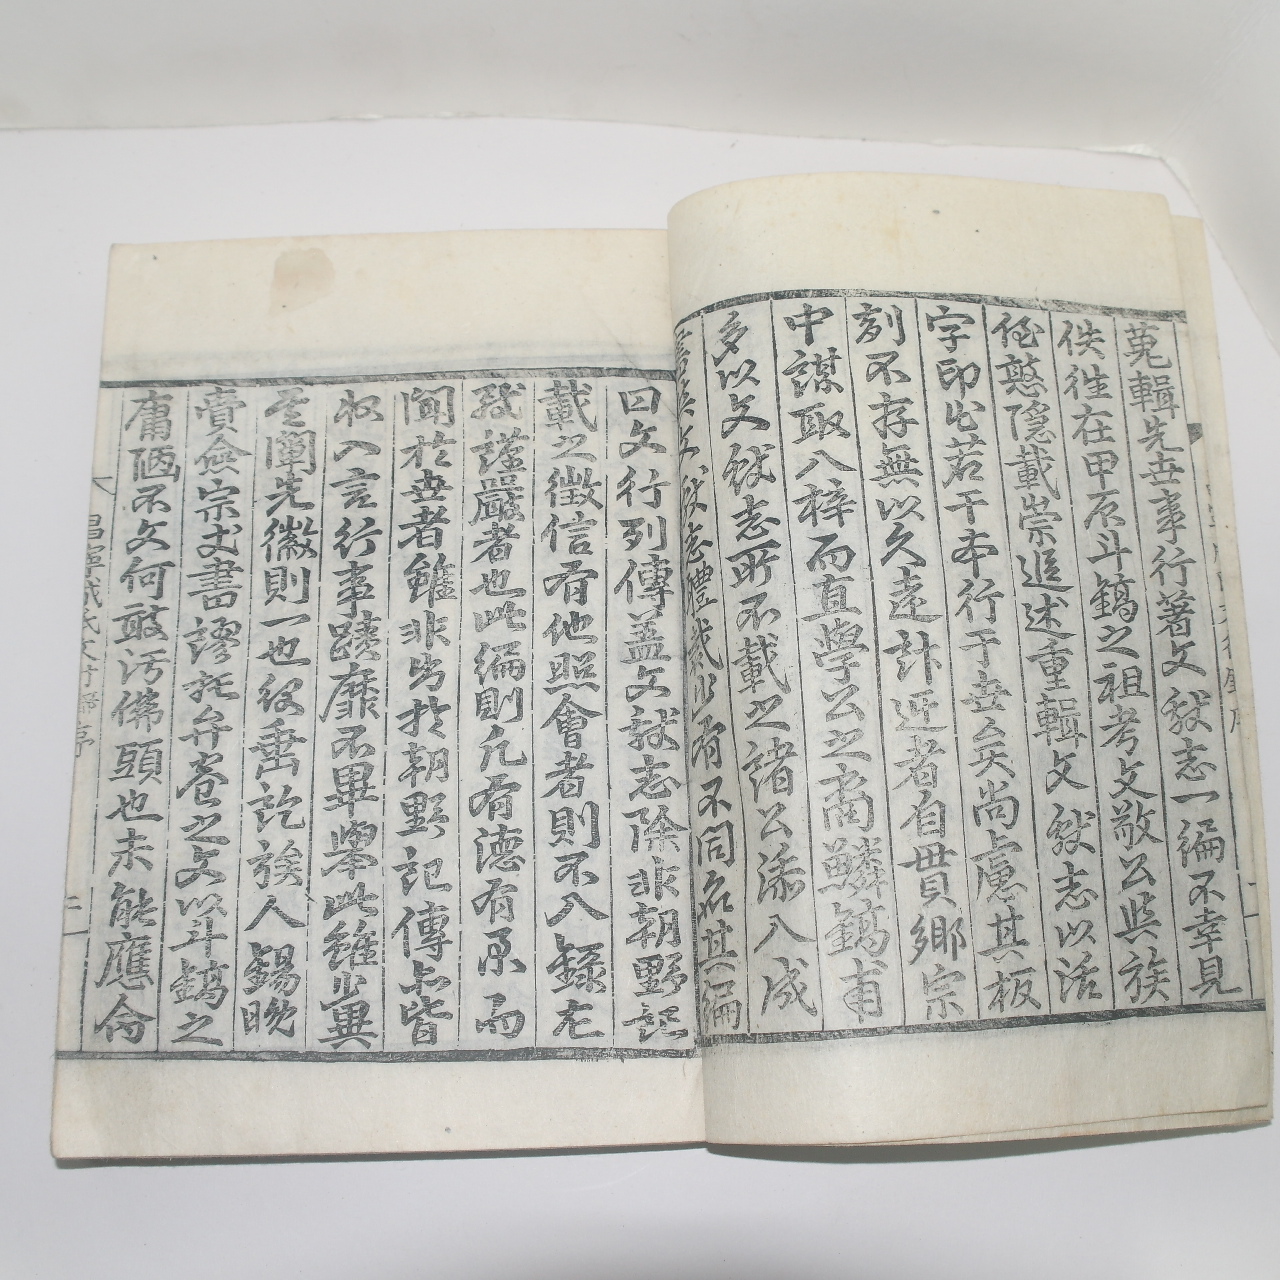 蒐輯先世事行著文献志一編不幸見
佚徃在甲辰斗鎬之祖考文敬公與族
侄憼隱載崇追述重輯文献志以活
字印出若干本行于世久矣尚慮其板
刻不存無以久遠訃近者自貫鄉宗
中謀取入梓而直學公之裔鱗鎬甫
多以文献志所不載之諸公添入成
献志體裁 有不同名其編
曰文行列傳盖文献志除非朝野記
載之徵信有他照會者則不入錄尤
致謹嚴者也此編則凡有德有 而
聞於世者雖非出於朝野記傳亦皆
收入言行事蹟靡不畢擧此雖少異
先徽則一也役垂訖族人錫晩
賫僉宗丈書謬托弁卷之文以斗鎬之
庸陋不文何敢汚佛頭也未能應命
昌寧成氏文行 序
二